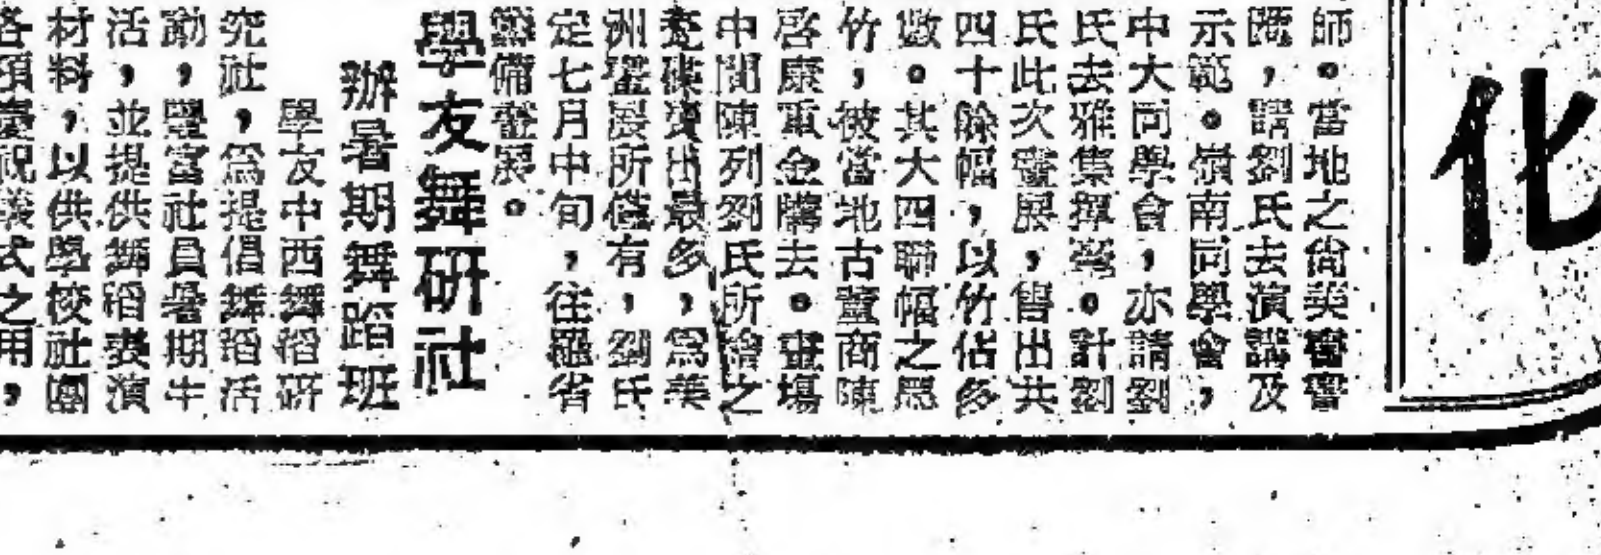 化
師。當地之尚美
院，請劉氏去演講及
示範。嶺南同學會，
中大同學會，亦請劉
氏去雅集揮毫。計劉
氏此次畫展，售出共
四十餘幅，以竹佔多
數。其大四聯幅之墨
竹，被當地古董商陳
啓康重金購去。畫場
中間陳列劉氏所繪之
瓷碟賣出最多，爲美
洲畫展所僅有，劉氏
定七月中旬，往羅省
籌備畫展。
學友舞研社
辦暑期舞蹈班
學友中西舞蹈研
究社，爲提倡舞蹈活
動，豐富社員暑期生
活，並提供舞蹈表演
材料，以供學校社團
各項慶祝儀式之用，